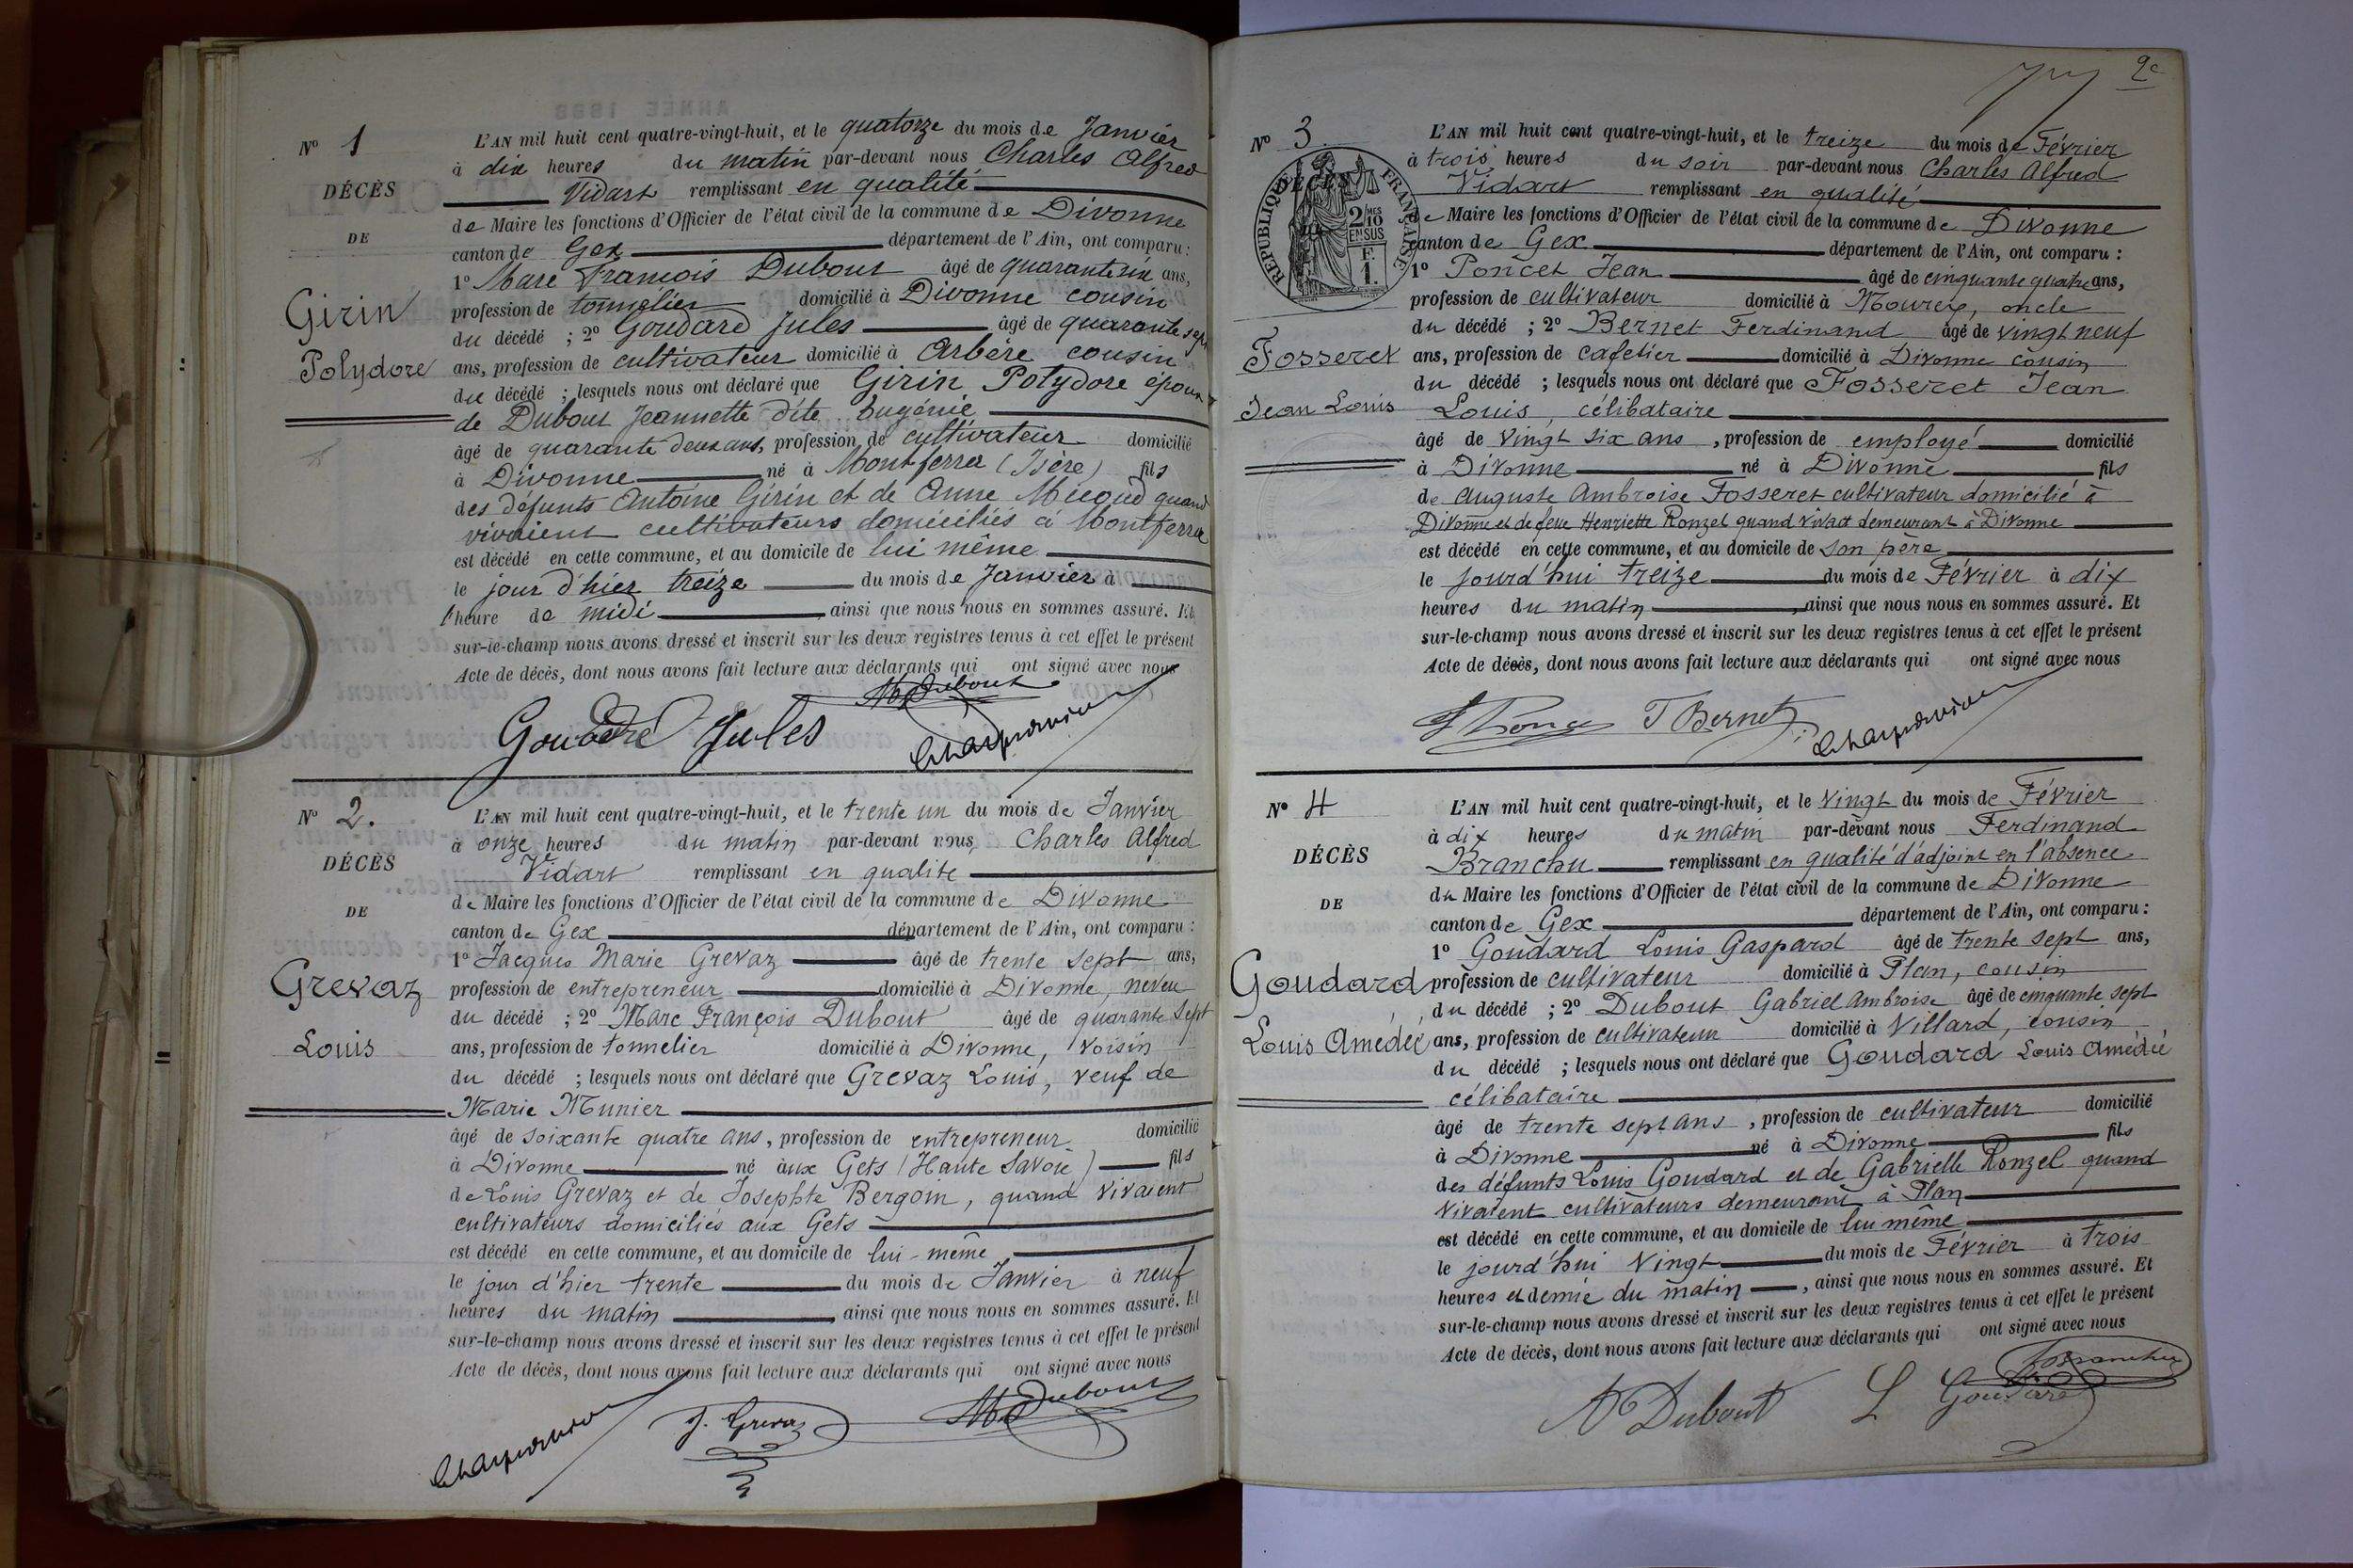 N° 1
DÉCÈS
DE
Girin
Polydore
L'AN mil huit cent quatre-vingt-huit, et le quatorze du mois de Janvier
à dix heures du matin par-devant nous Charles Alfred
Vidart remplissant en qualité
de Maire les fonctions d'Officier de l'état civil de la commune de Divonne
canton de Gex département de l'Ain, ont comparu :
1° Marc François Dubout âgé de quarante six ans,
profession de tonnelier domicilié à Divonne cousin
du décédé ; 2° Goudard Jules âgé de quarante sept
ans, profession de cultivateur domicilié à Arbère cousin
du décédé ; lesquels nous ont déclaré que Girin Polydore époux
de Dubout Jeannette dite Eugénie
âgé de quarante deux ans, profession de cultivateur domicilié
à Divonne né à Montferra (Isère) fils
des défunts Antoine Girin et de Anne Micoud quand
vivaient cultivateurs domiciliés à Montferra
est décédé en cette commune, et au domicile de lui même
le jour d'hier treize du mois de Janvier à
l'heure de midi ainsi que nous nous en sommes assuré. Et
sur-le-champ nous avons dressé et inscrit sur les deux registres tenus à cet effet le présent
Acte de décès, dont nous avons fait lecture aux déclarants qui ont signé avec nous
M Dubout
Goudard Jules
N° 2.
DÉCÈS
DE
Grevaz
Louis
L'AN mil huit cent quatre-vingt-huit, et le trente un du mois de Janvier
à onze heures du matin par-devant nous, Charles Alfred
Vidart remplissant en qualite
de Maire les fonctions d'Officier de l'état civil de la commune de Divonne
canton de Gex département de l'Ain, ont comparu :
1° Jacques Marie Grevaz âgé de trente sept ans,
profession de entrepreneur domicilié à Divonne, neveu
du décédé ; 2° Marc François Dubout âgé de quarante sept
ans, profession de tonnelier domicilié à Divonne, voisin
du décédé ; lesquels nous ont déclaré que Grevaz Louis, veuf de
Marie Munier
âgé de soixante quatre ans, profession de entrepreneur domicilié
à Divonne né aux Gets (Haute Savoie) fils
de Louis Grevaz et de Josephte Bergoin, quand vivaient
cultivateurs domiciliés aux Gets
est décédé en cette commune, et au domicile de lui-même
le jour d'hier trente du mois de Janvier à neuf
heures du matin ainsi que nous nous en sommes assuré. Et
sur-le-champ nous avons dressé et inscrit sur les deux registres tenus à cet effet le présent
Acte de décès, dont nous avons fait lecture aux déclarants qui ont signé avec nous
J. Grevaz M Dubout
2e
N° 3.
DÉCÈS
RÉPUBLIQUE FRANÇAISE
2/10 EN SUS
F. 1.
Fosseret
Jean Louis
L'AN mil huit cent quatre-vingt-huit, et le treize du mois de Février
à trois heures du soir par-devant nous Charles Alfred
Vidart remplissant en qualité
de Maire les fonctions d'Officier de l'état civil de la commune de Divonne
canton de Gex département de l'Ain, ont comparu :
1° Poncet Jean âgé de cinquante quatre ans,
profession de cultivateur domicilié à Mourex, oncle
du décédé ; 2° Bernet Ferdinand âgé de vingt neuf
ans, profession de cafetier domicilié à Divonne cousin
du décédé ; lesquels nous ont déclaré que Fosseret Jean
Louis, célibataire
âgé de vingt six ans, profession de employé domicilié
à Divonne né à Divonne fils
de Auguste Ambroise Fosseret cultivateur domicilié à
Divonne et de feue Henriette Ronzel quand vivait demeurant à Divonne
est décédé en cette commune, et au domicile de son père
le jourd'hui treize du mois de Février à dix
heures du matin, ainsi que nous nous en sommes assuré. Et
sur-le-champ nous avons dressé et inscrit sur les deux registres tenus à cet effet le présent
Acte de décès, dont nous avons fait lecture aux déclarants qui ont signé avec nous
Bernet
N° 4
DÉCÈS
DE
Goudard
Louis Amédée
L'AN mil huit cent quatre-vingt-huit, et le vingt du mois de Février
à dix heures du matin par-devant nous Ferdinand
Branchu remplissant en qualité d'adjoint en l'absence
du Maire les fonctions d'Officier de l'état civil de la commune de Divonne
canton de Gex département de l'Ain, ont comparu :
1° Goudard Louis Gaspard âgé de trente sept ans,
profession de cultivateur domicilié à Plan, cousin
du décédé ; 2° Dubout Gabriel Ambroise âgé de cinquante sept
ans, profession de cultivateur domicilié à Villard, cousin
du décédé ; lesquels nous ont déclaré que Goudard Louis Amédée
célibataire
âgé de trente sept ans, profession de cultivateur domicilié
à Divonne né à Divonne fils
des défunts Louis Goudard et de Gabrielle Ronzel quand
vivaient cultivateurs demeurant à Plan
est décédé en cette commune, et au domicile de lui même
le jourd'hui vingt du mois de Février à trois
heures et demie du matin, ainsi que nous nous en sommes assuré. Et
sur-le-champ nous avons dressé et inscrit sur les deux registres tenus à cet effet le présent
Acte de décès, dont nous avons fait lecture aux déclarants qui ont signé avec nous
Branchu
Dubout L Goudard